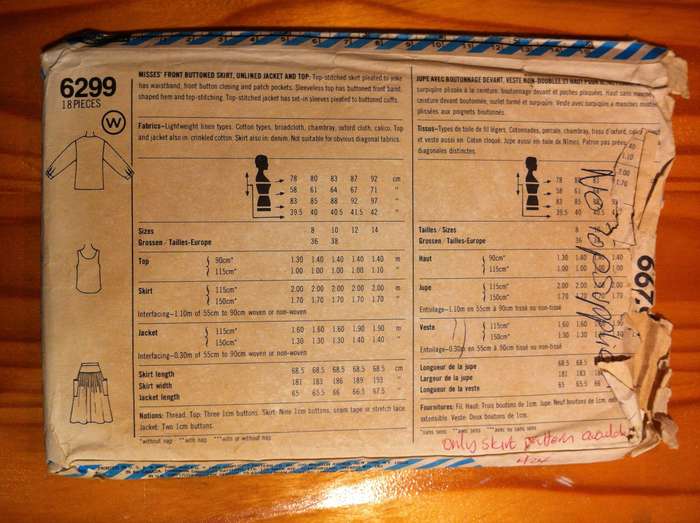 6299
18 PIECES
W
MISSES' FRONT BUTTONED SKIRT, UNLINED JACKET AND TOP: Top-stitched skirt pleated to yoke
has waistband, front button closing and patch pockets. Sleeveless top has buttoned front band,
shaped hem and top-stitching. Top-stitched jacket has set-in sleeves pleated to buttoned cuffs.
Fabrics–Lightweight linen types. Cotton types, broadcloth, chambray, oxford cloth, calico. Top
and jacket also in: crinkled cotton. Skirt also in: denim. Not suitable for obvious diagonal fabrics.
78 80 83 87 92 cm
58 61 64 67 71 "
83 85 88 92 97 "
39.5 40 40.5 41.5 42 "
Sizes 8 10 12 14
Grossen / Tailles-Europe 36 38
Top 90cm* 1.30 1.40 1.40 1.40 1.40 m
115cm* 1.00 1.00 1.00 1.10 1.10 "
Skirt 115cm* 2.00 2.00 2.00 2.00 2.00 m
150cm* 1.70 1.70 1.70 1.70 1.70 "
Interfacing–1.10m of 55cm to 90cm woven or non-woven
Jacket 115cm* 1.60 1.60 1.90 1.90 1.90 m
150cm* 1.30 1.30 1.30 1.40 1.40 "
Interfacing–0.30m of 55cm to 90cm woven or non-woven
Skirt length 68.5 68.5 68.5 68.5 68.5 cm
Skirt width 181 183 186 189 193 "
Jacket length 65 65.5 66 66.5 67.5 "
Notions: Thread. Top: Three 1cm buttons. Skirt: Nine 1cm buttons, seam tape or stretch lace.
Jacket: Two 1cm buttons.
*without nap **with nap ***with or without nap
JUPE AVEC BOUTONNAGE DEVANT, VESTE NON-DOUBLEE ET HAUT
surpiquée plissée à la ceinture, boutonnage devant et poches plaquées. Haut sans
ceinture devant boutonnée, ourlet formé et surpiqûre. Veste avec surpiqûre à manches montées
plissées aux poignets boutonnés.
Tissus–Types de toile de fil légers. Cotonnades, percale, chambray, tissu d'oxford, calicot
et veste aussi en: Coton cloqué. Jupe aussi en: toile de Nîmes. Patron pas prévu
diagonales distinctes.
78
58 61
83 85
39.5 40
Tailles / Sizes 8
Grossen / Tailles-Europe 36
Haut 90cm* 1.30 1.40 1.40 1.40
115cm* 1.00 1.00 1.00 1.10
Jupe 115cm* 2.00 2.00 2.00 2.00
150cm* 1.70 1.70 1.70
Entoilage–1.10m de 55cm à 90cm tissé ou non-tissé
Veste 115cm* 1.60 1.60 1.90
150cm* 1.30 1.30
Entoilage–0.30m de 55cm à 90cm tissé ou non-tissé
Longueur de la jupe 68.5 68.5
Largeur de la jupe 181 183
Longueur de la veste 65 65.5
Fournitures: Fil. Haut: Trois boutons de 1cm. Jupe: Neuf boutons de 1cm,
extensible. Veste: Deux boutons de 1cm.
*sans sens **avec sens ***avec ou sans sens
only skirt pattern